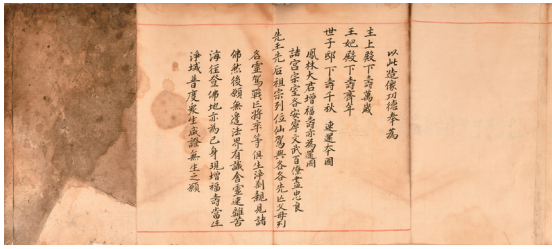 以此造像功德奉為
主上殿下壽萬歲
王妃殿下壽齊年
世子邸下壽千秋 速還本國
鳳林大君增福壽亦為還國
諸宮宗室各安寧文武百僚盡忠良
先王先后祖宗列位仙駕與各各先亡父母列
名靈駕戰亡將卒等俱生淨刹親見諸
佛然後願無邊法界有識含靈速離苦
海徑登佛地亦為己身現增福壽當生
淨域普度衆生咸證無生之願